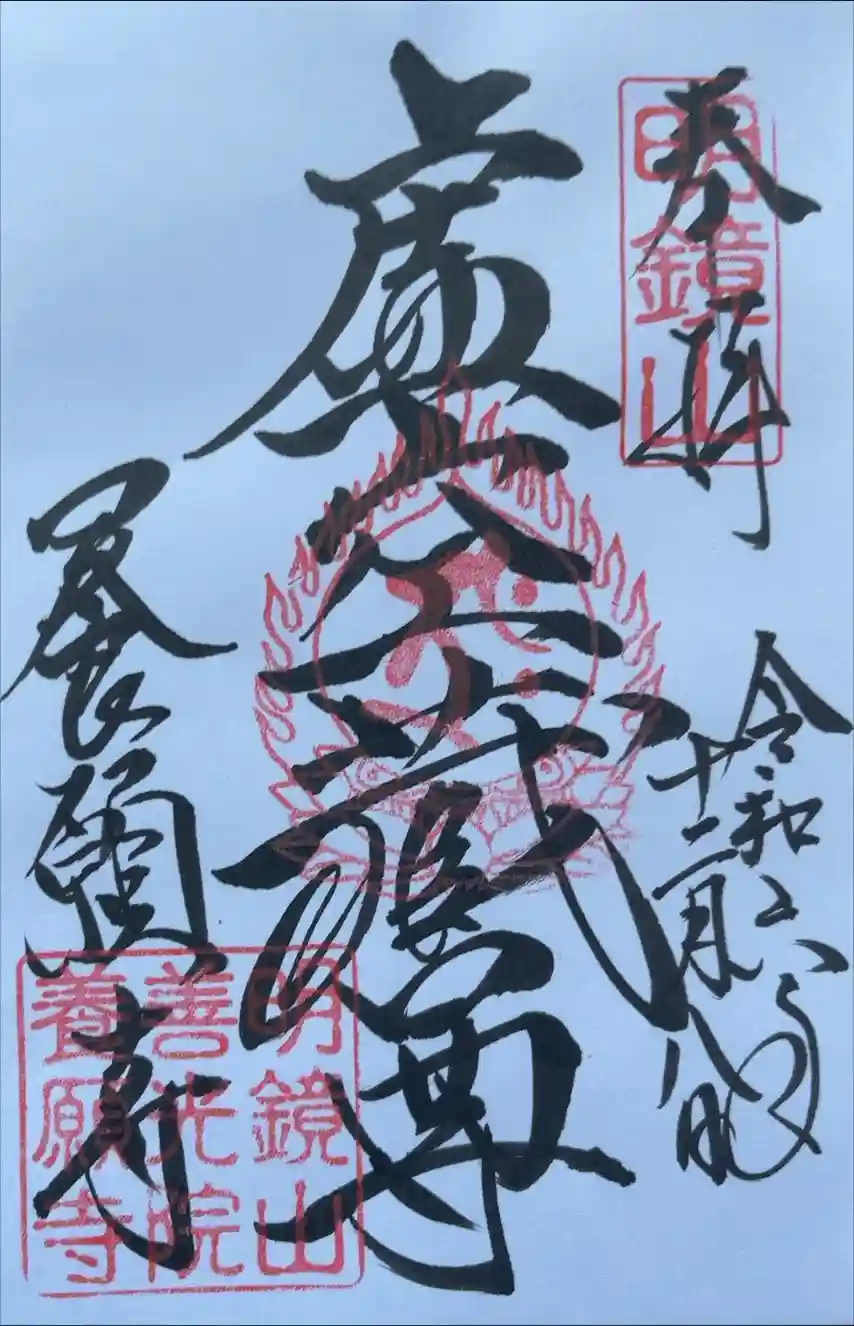 奉拝
明鏡山
令和六年
十二月八日
虚空蔵尊
養願寺
明鏡山
善光院
養願寺